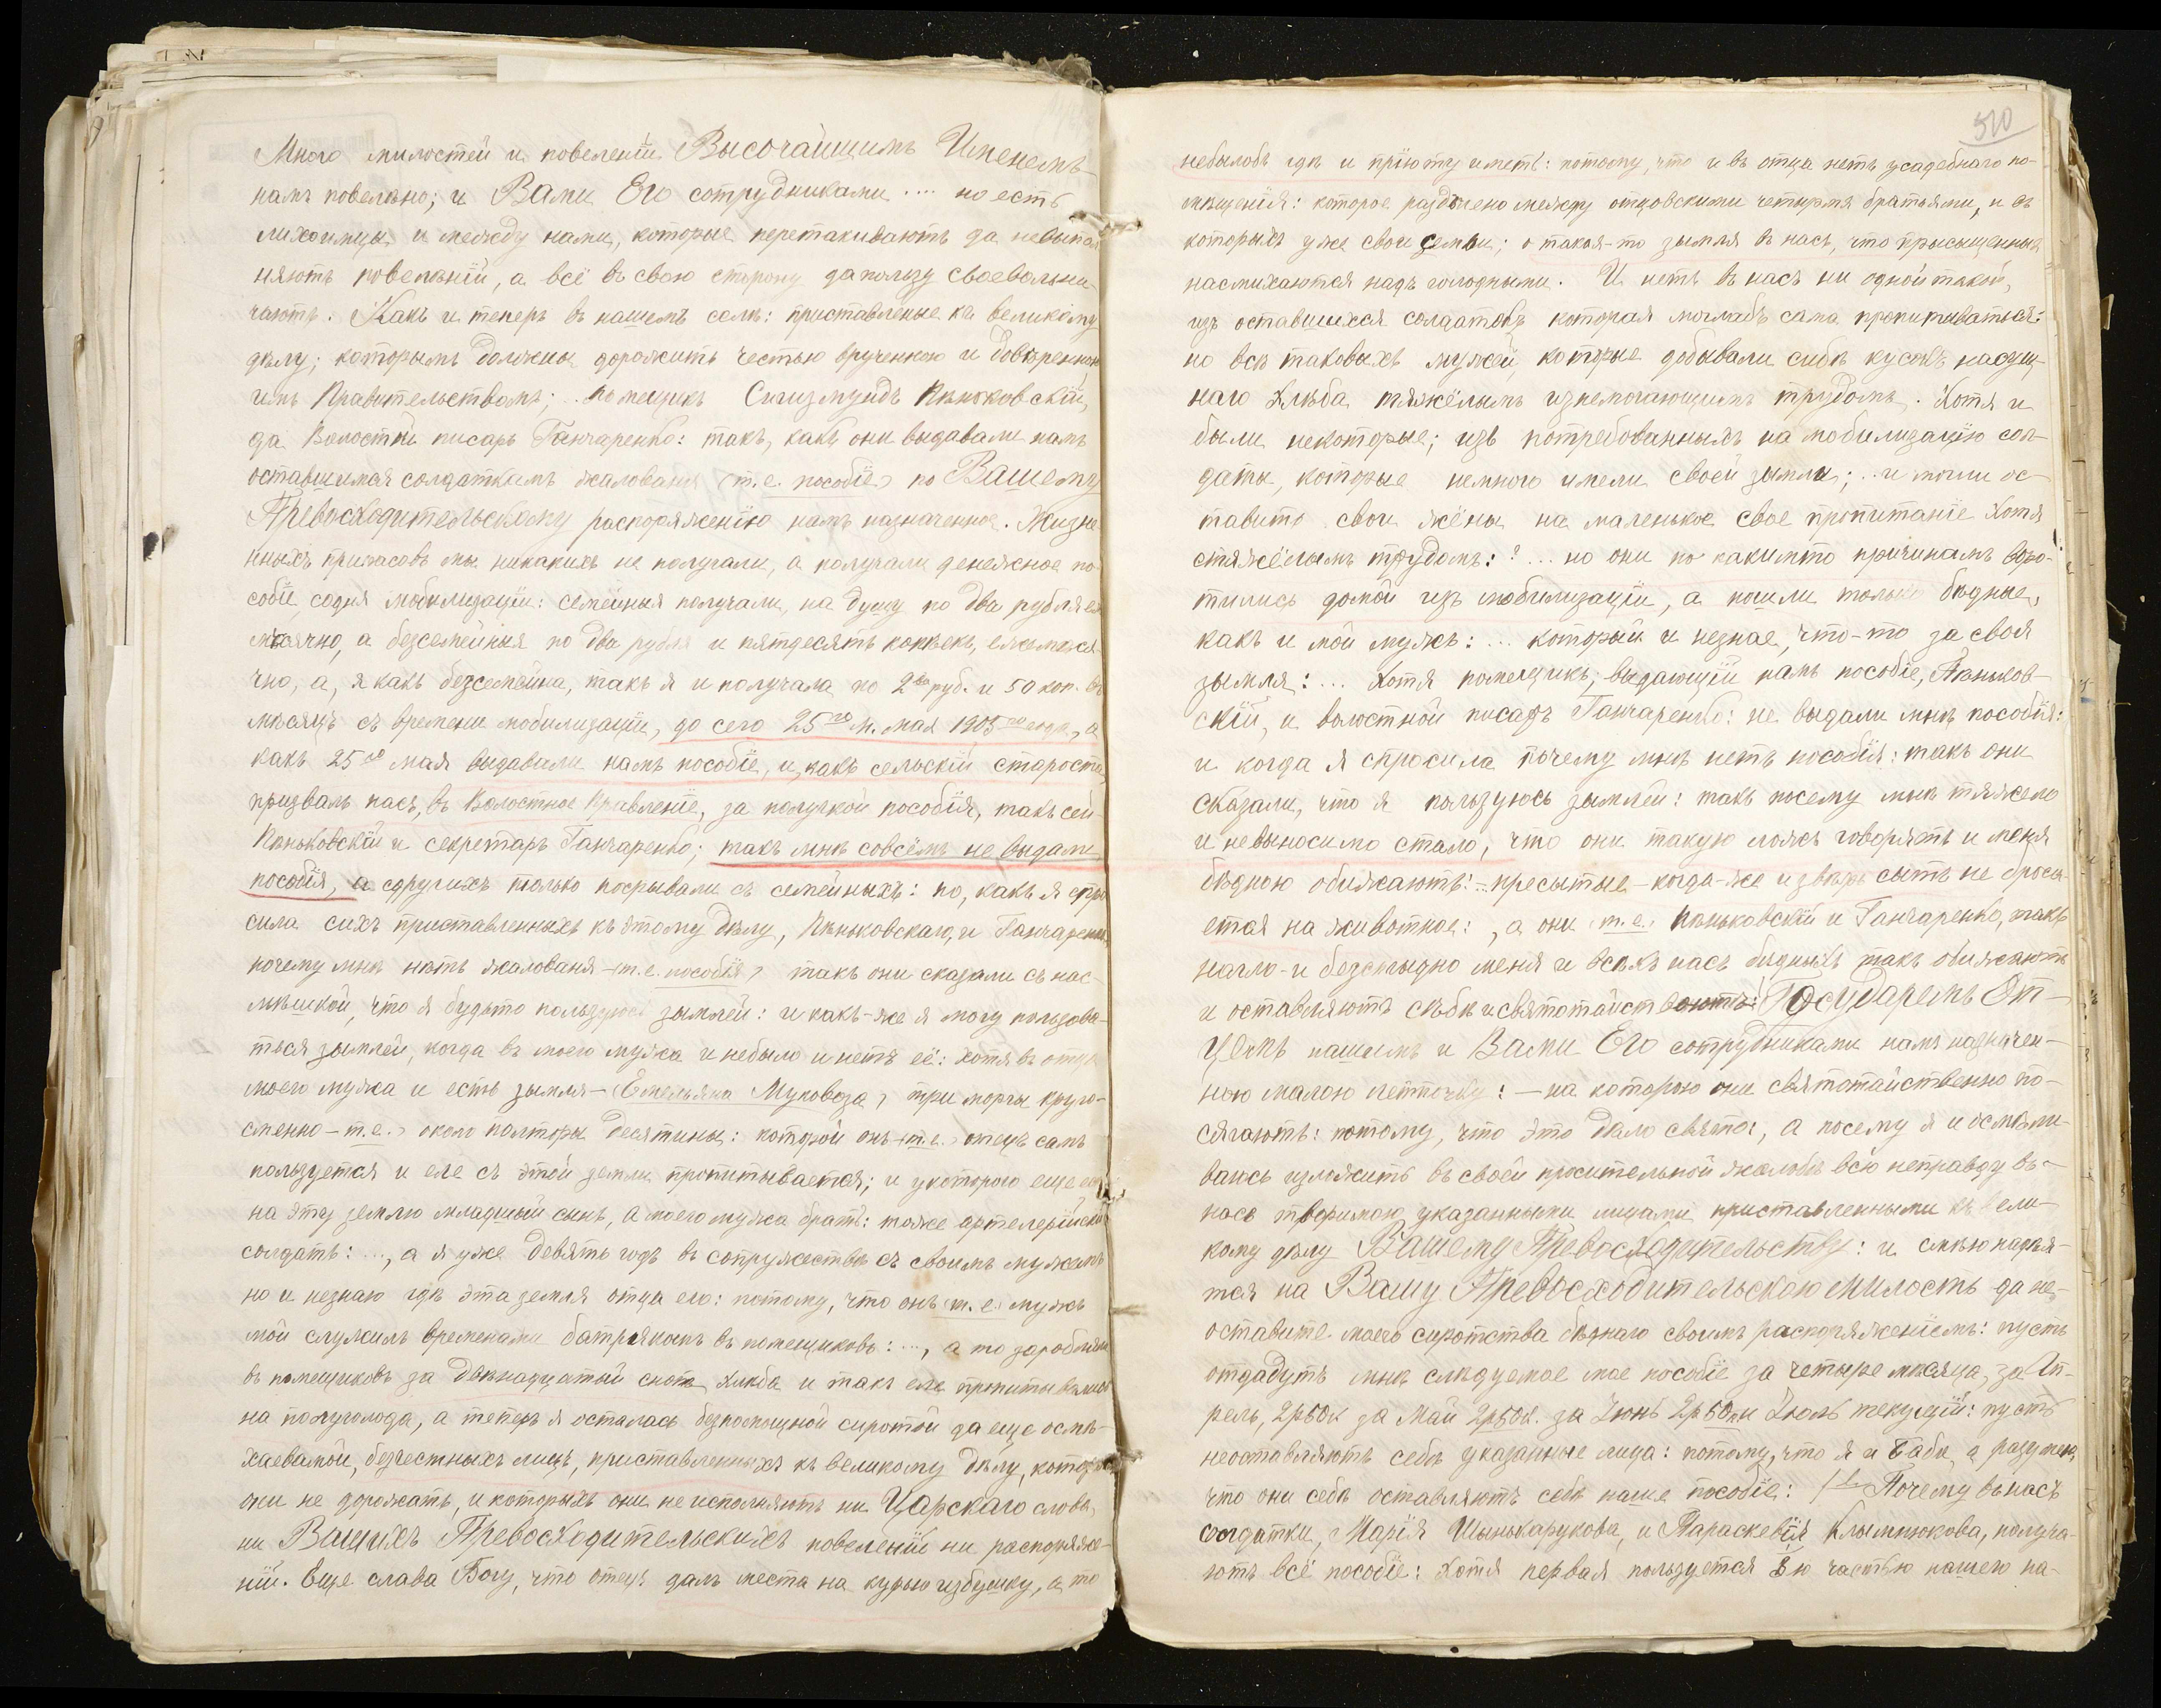 Много милостей и повеленій Высочайшимъ Именемъ
намъ повелѣно; и Вами Его сотрудниками .... но есть
лихоимцы и между нами, которые перетакиваютъ да невыпол
няютъ повелѣній, а всё въ свою сторону да пользу своевольни-
чаютъ. Какъ и теперь въ нашемъ селѣ: приставленые къ великому
дѣлу; которымъ должны дорожить честью врученною и довѣренною
имъ Правительствомъ; помещикъ Сигизмундъ Пѣньковскій,
да Волостной писарь Ганчаренко: такъ, какъ они выдавали намъ
оставшимся солдаткамъ жалованя (т.е. пособіе) по Вашему
Превосходительскому распоряженію намъ назначенное. Жизне
нныхъ припасовъ мы никакихъ не получали, а получали денежное по-
собіе содня мобилизаціи: семейныя получали, на душу по два рубля еже
мѣсячно, а безсемейныя по два рубля и пятдесятъ копѣекъ, ежемѣся-
чно, а, я какъ безсемейна, такъ я и получала по 2ва руб. и 50 коп. въ
мѣсяцъ съ времени мобилизаціи, до сего 25го м. мая 1905го года, а
какъ 25го мая выдавали намъ пособіе, и, какъ сельскій староста
призвалъ насъ, въ Волостное Правленіе, за получкой пособія, такъ сей
Пѣньковскій и секретарь Ганчаренко; такъ мнѣ совсёмъ не выдали
пособія, а сдругихъ только посрывали съ семейныхъ: но, какъ я спро
сила сихъ приставленныхъ къ этому дѣлу, Пѣньковскаго, и Ганчаренка,
почему мнѣ нѣтъ жалованя (т.е. пособія) такъ они сказали съ нас-
мѣшкой, что я будьто пользуюсь зымлей: и какъ-же я могу пользова-
ться зымлей, когда въ моего мужа и небыло и нетъ её: хотя въ отца
моего мужа и есть зымля - (Емельяна Муковоза) три моргы круго-
сменно - т.е.) около полторы десятины: которой онъ (т.е.) отецъ самъ
пользуется и еле съ этой земли пропитывается; и укоторого еще есть
на эту землю младшый сынъ, а моего мужа братъ: тоже артелерійскій
солдатъ: ..., а я уже девять годъ въ сопружествѣ съ своимъ мужемъ
но и незнаю гдѣ эта земля отца его: потому, что онъ (т.е.) мужъ
мой служилъ временами батрякомъ въ помещиковъ: ..., а то заробляли
въ помещиковъ за двѣнадцатой снопъ хлѣба и такъ еле пропитывались
на полуголода, а теперь я осталась безпомощной сиротой да еще осмѣ-
хаевамой, безчестныхъ лицъ, приставленныхъ къ великому дѣлу, которымъ
они не дорожатъ, и которыхъ они не исполняютъ ни Царскаго слова,
ни Вашихъ Превосходительскихъ повеленій ни распоряже-
ній. Еще слава Богу, что отецъ далъ места на курью избушку, а то
510
небылобъ гдѣ и пріюту иметь: потому, что и въ отца нетъ усадебнаго по-
мѣщенія: которое раздѣлено между отцовскими четырмя братьями, и въ
которыхъ уже свои семьи; о такая-то зымля въ насъ, что прысыщенные
насмихаются надъ голодными. И нетъ въ насъ ни одной такой,
изъ оставшихся солдатокъ которая моглабъ сама пропитываться:
но всѣ таковыхъ мужей, которые добывали сибѣ кусокъ насущ-
наго хлѣба тяжёлымъ изнемогающимъ трудомъ. Хотя и
были некоторые; изъ потребованныхъ на мобилизацію сол-
даты, которые немного имели своей зымли; .. и могли ос-
тавить свои жёны на маленькое свое пропитаніе хотя
стяжёлымъ трудомъ: ? ... но они по какимто причинамъ воро-
тились домой изъ мобилизаціи, а пошли только бѣдные,
какъ и мой мужъ: ... который и незнае, что-то за своя
зымля: ... Хотя помещикъ, выдающій намъ пособіе, Пѣньков-
скій, и волостной писарь Ганчаренко: не выдали мнѣ пособія:
и когда я спросила почему мнѣ нетъ пособія: такъ они
сказали, что я пользуюсь зымлей: такъ посему мнѣ тяжело
и невыносимо стало, что они такую ложъ говорятъ и меня
бѣдною обижаютъ: - пресытые - когда-же и звѣрь сытъ не броса
ется на животное: , а они (т.е.) Пѣньковскій и Ганчаренко, такъ
нагло и безстыдно меня и всѣхъ насъ бидныхъ такъ обижаютъ
и оставляютъ сѣбѣ и святотайствоютъ: Государемъ От-
цемъ нашимъ и Вами Его сотрудниками намъ назначен-
ною малою лепточку: - на которою они святотайственно по-
сягаютъ: потому, что это дѣло свято:, а посему я и осмѣли-
ваюсь изложить въ своей просительной жалобѣ всю неправду въ
насъ творимою указанными лицами приставленными къ вели-
кому дѣлу Вашему Превосходительству: и смѣю надѣя-
тся на Вашу Превосходительскою Милость да не-
оставите моего сиротства бѣднаго своимъ распоряженіемъ: пусть
отдадутъ мнѣ слѣдуемое мое пособіе за четыре мѣсяца, за Ап-
рель, 2р50к за Май 2р50к. за Іюнь 2р50к и Іюль текущій: пусть
неоставляютъ себѣ указанные лица: потому, что я и баба, а разумею,
что они себѣ оставляютъ себѣ наше пособіе: Почему въ насъ
солдатки, Марія Шынькарукова, и Параскевія Клымчюкова, получа-
ютъ всё пособіе: хотя первая пользуется ю частью нашего на-